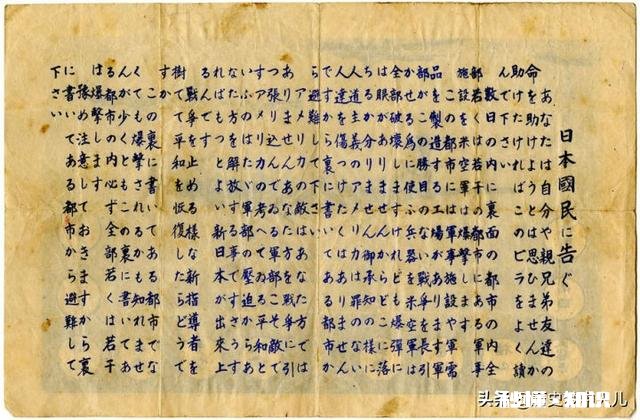 日本國民に告ぐ
あなたは自分や親兄弟友達の
命を助けようとは思ひませんか
助けたければこのビラをよく讀
んで下さい
数日の内に裏面の都市の内全
部若くは若干の都市にある軍事
施設を米空軍は爆撃します
この都市には軍事施設や軍需
品を製造する工場があります軍
部がこの勝目のない戦争を長引
かせる為に使ふ兵器を米空軍は
全部破壊しますけれども爆彈に
は眼がありませんからどこに落
ちるか分りません御承知の様に
人道主義のアメリカは罪のない
人達を傷つけたくはありません
ですから裏に書いてある都市か
ら避難して下さい
アメリカの敵はあなた方では
ありませんあなた方を戦争に引
つ張り込んでゐる軍部こそ敵で
すアメリカの考へてゐる平和と
いふのはたゞ軍部の壓迫からあ
なた方を解放する事ですさうす
ればもつとよい新日本が出来上
るんです
戦争を止める様な新指導者を
樹てゝ平和を恢復したらどうで
すか
この裏に書いてある都市でな
くても爆撃されるかも知れませ
んが少くともこの裏に書いてあ
る都市の内必ず全部若くは若干
は爆撃します
豫め注意しておきますから裏
に書いてある都市から避難して
下さい